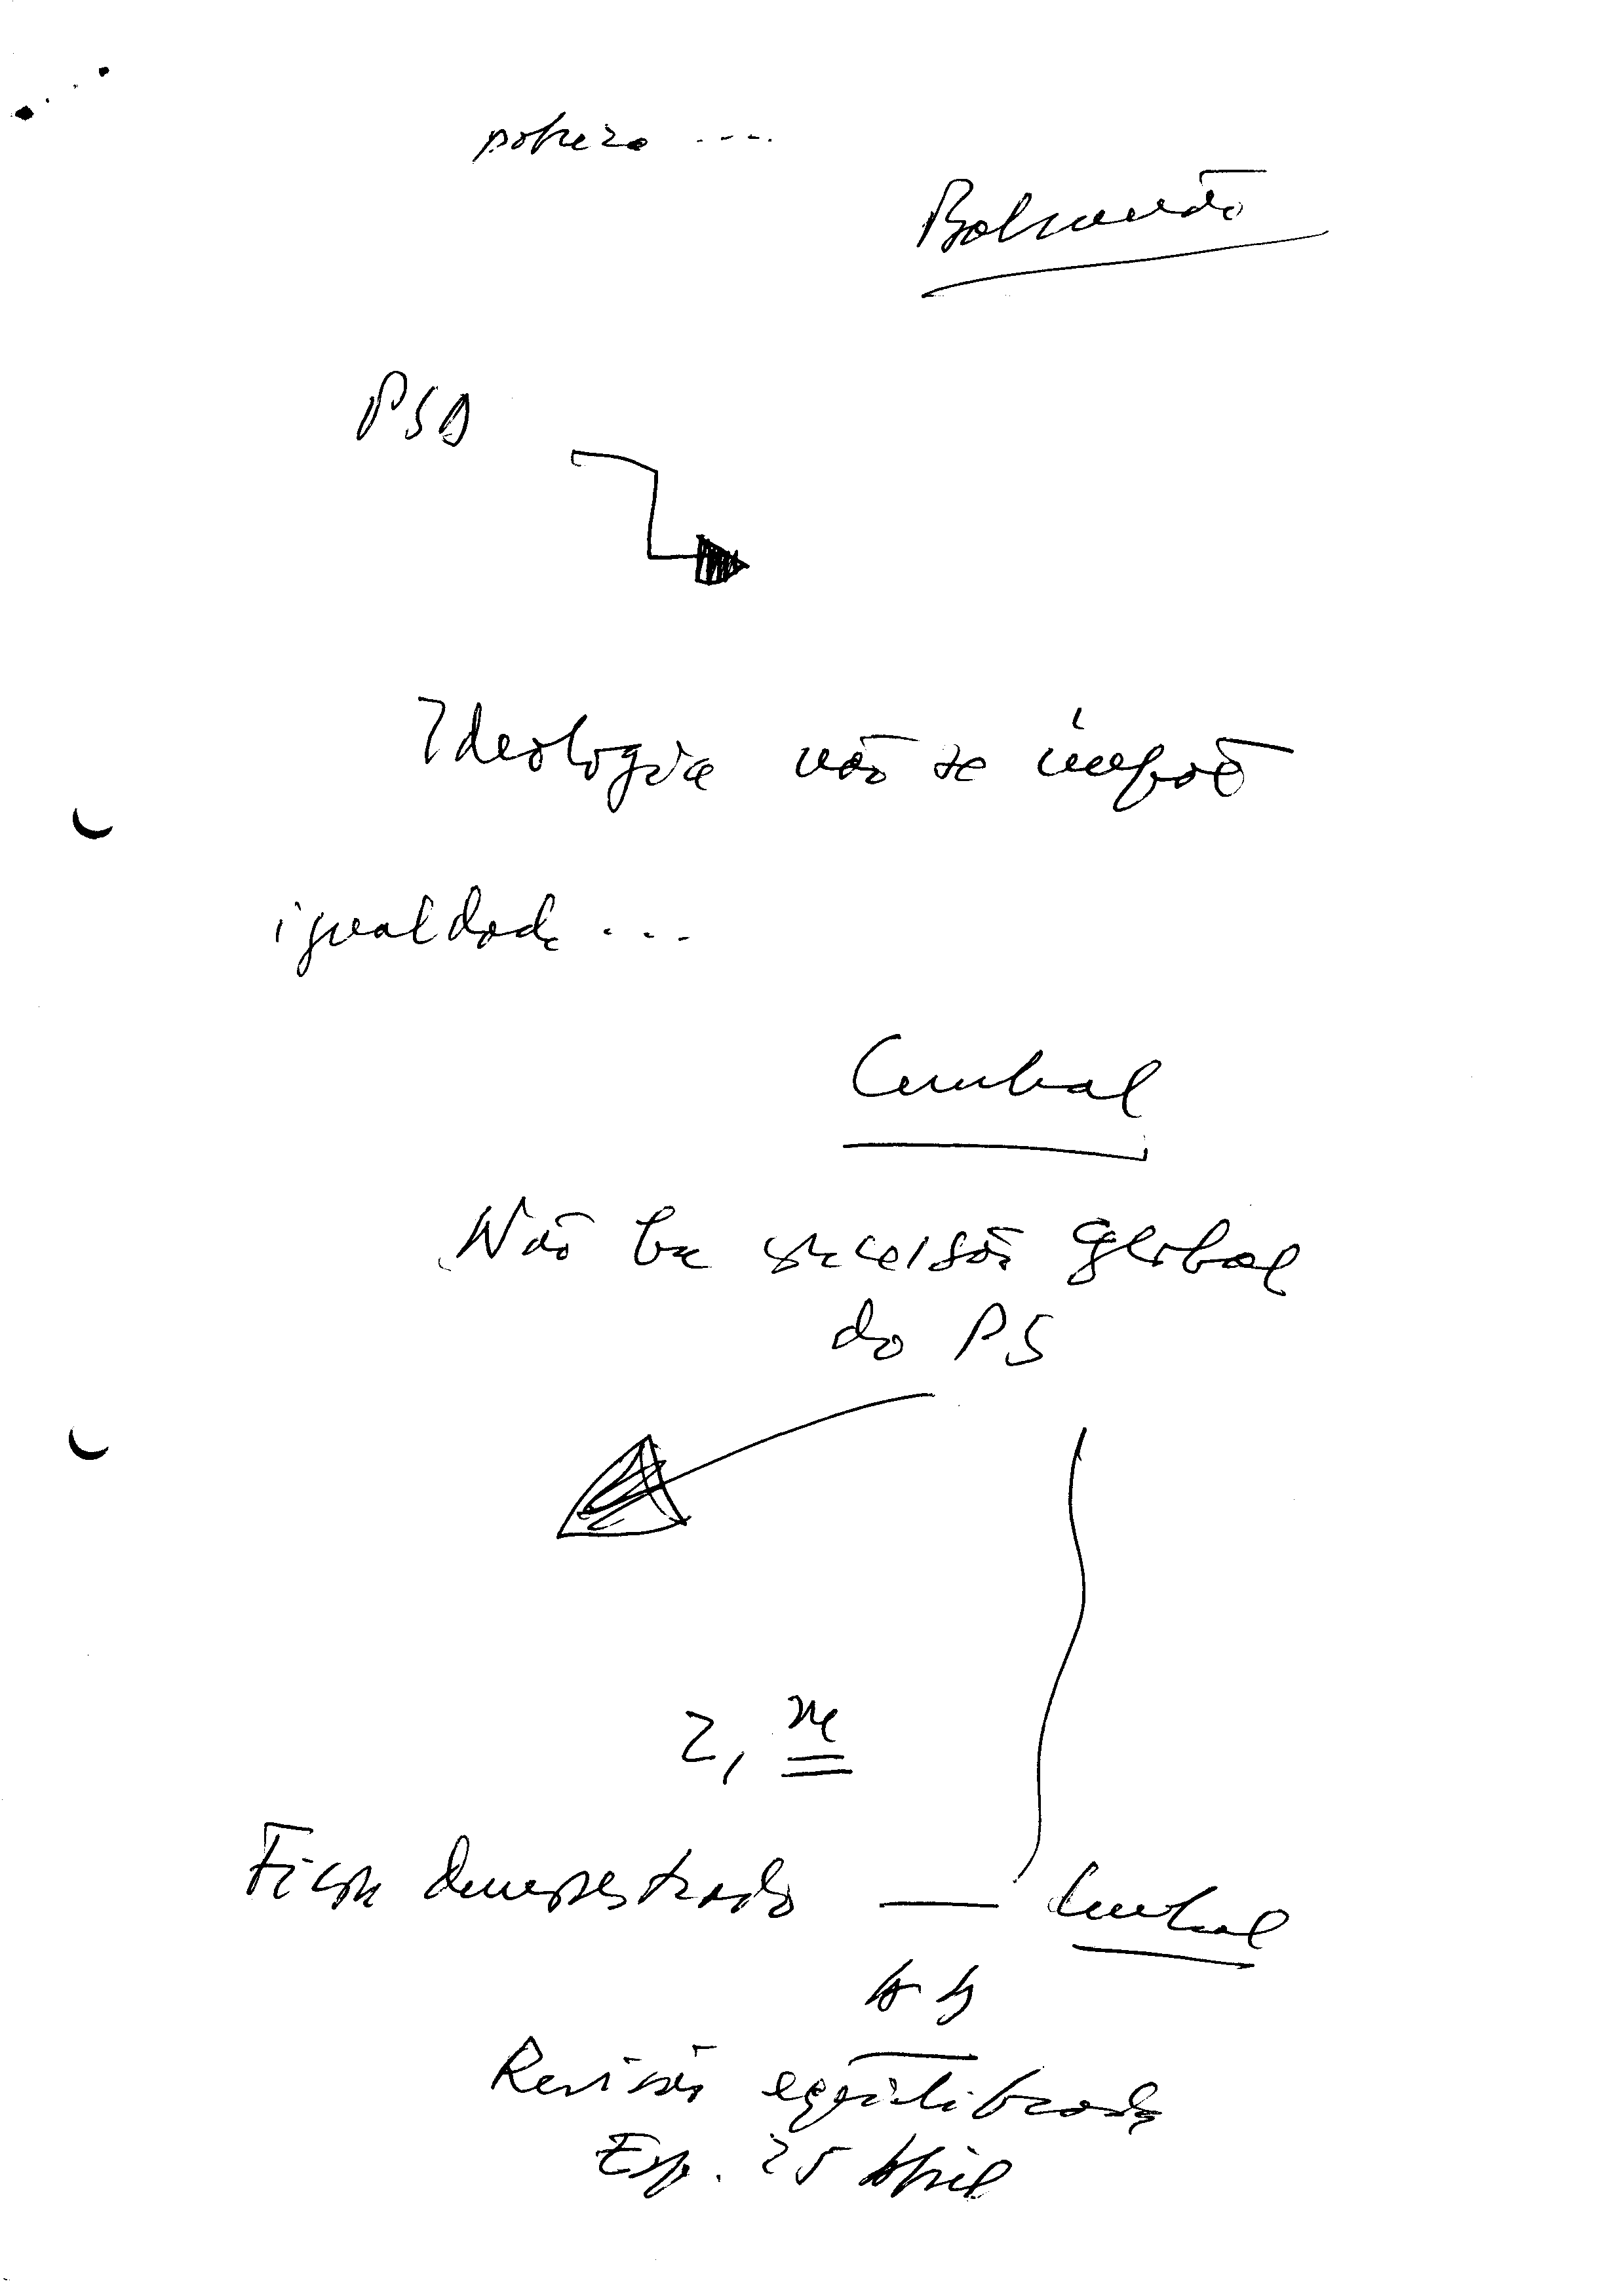 pobreza ....
Balsemão
PSD
Ideologia não se impõe
igualdade ...
Cunhal
Não há sucessão global
do PS
2,
Fica demonstrado — Cunhal
Revisão equilibrada
Esp. 25 Abril